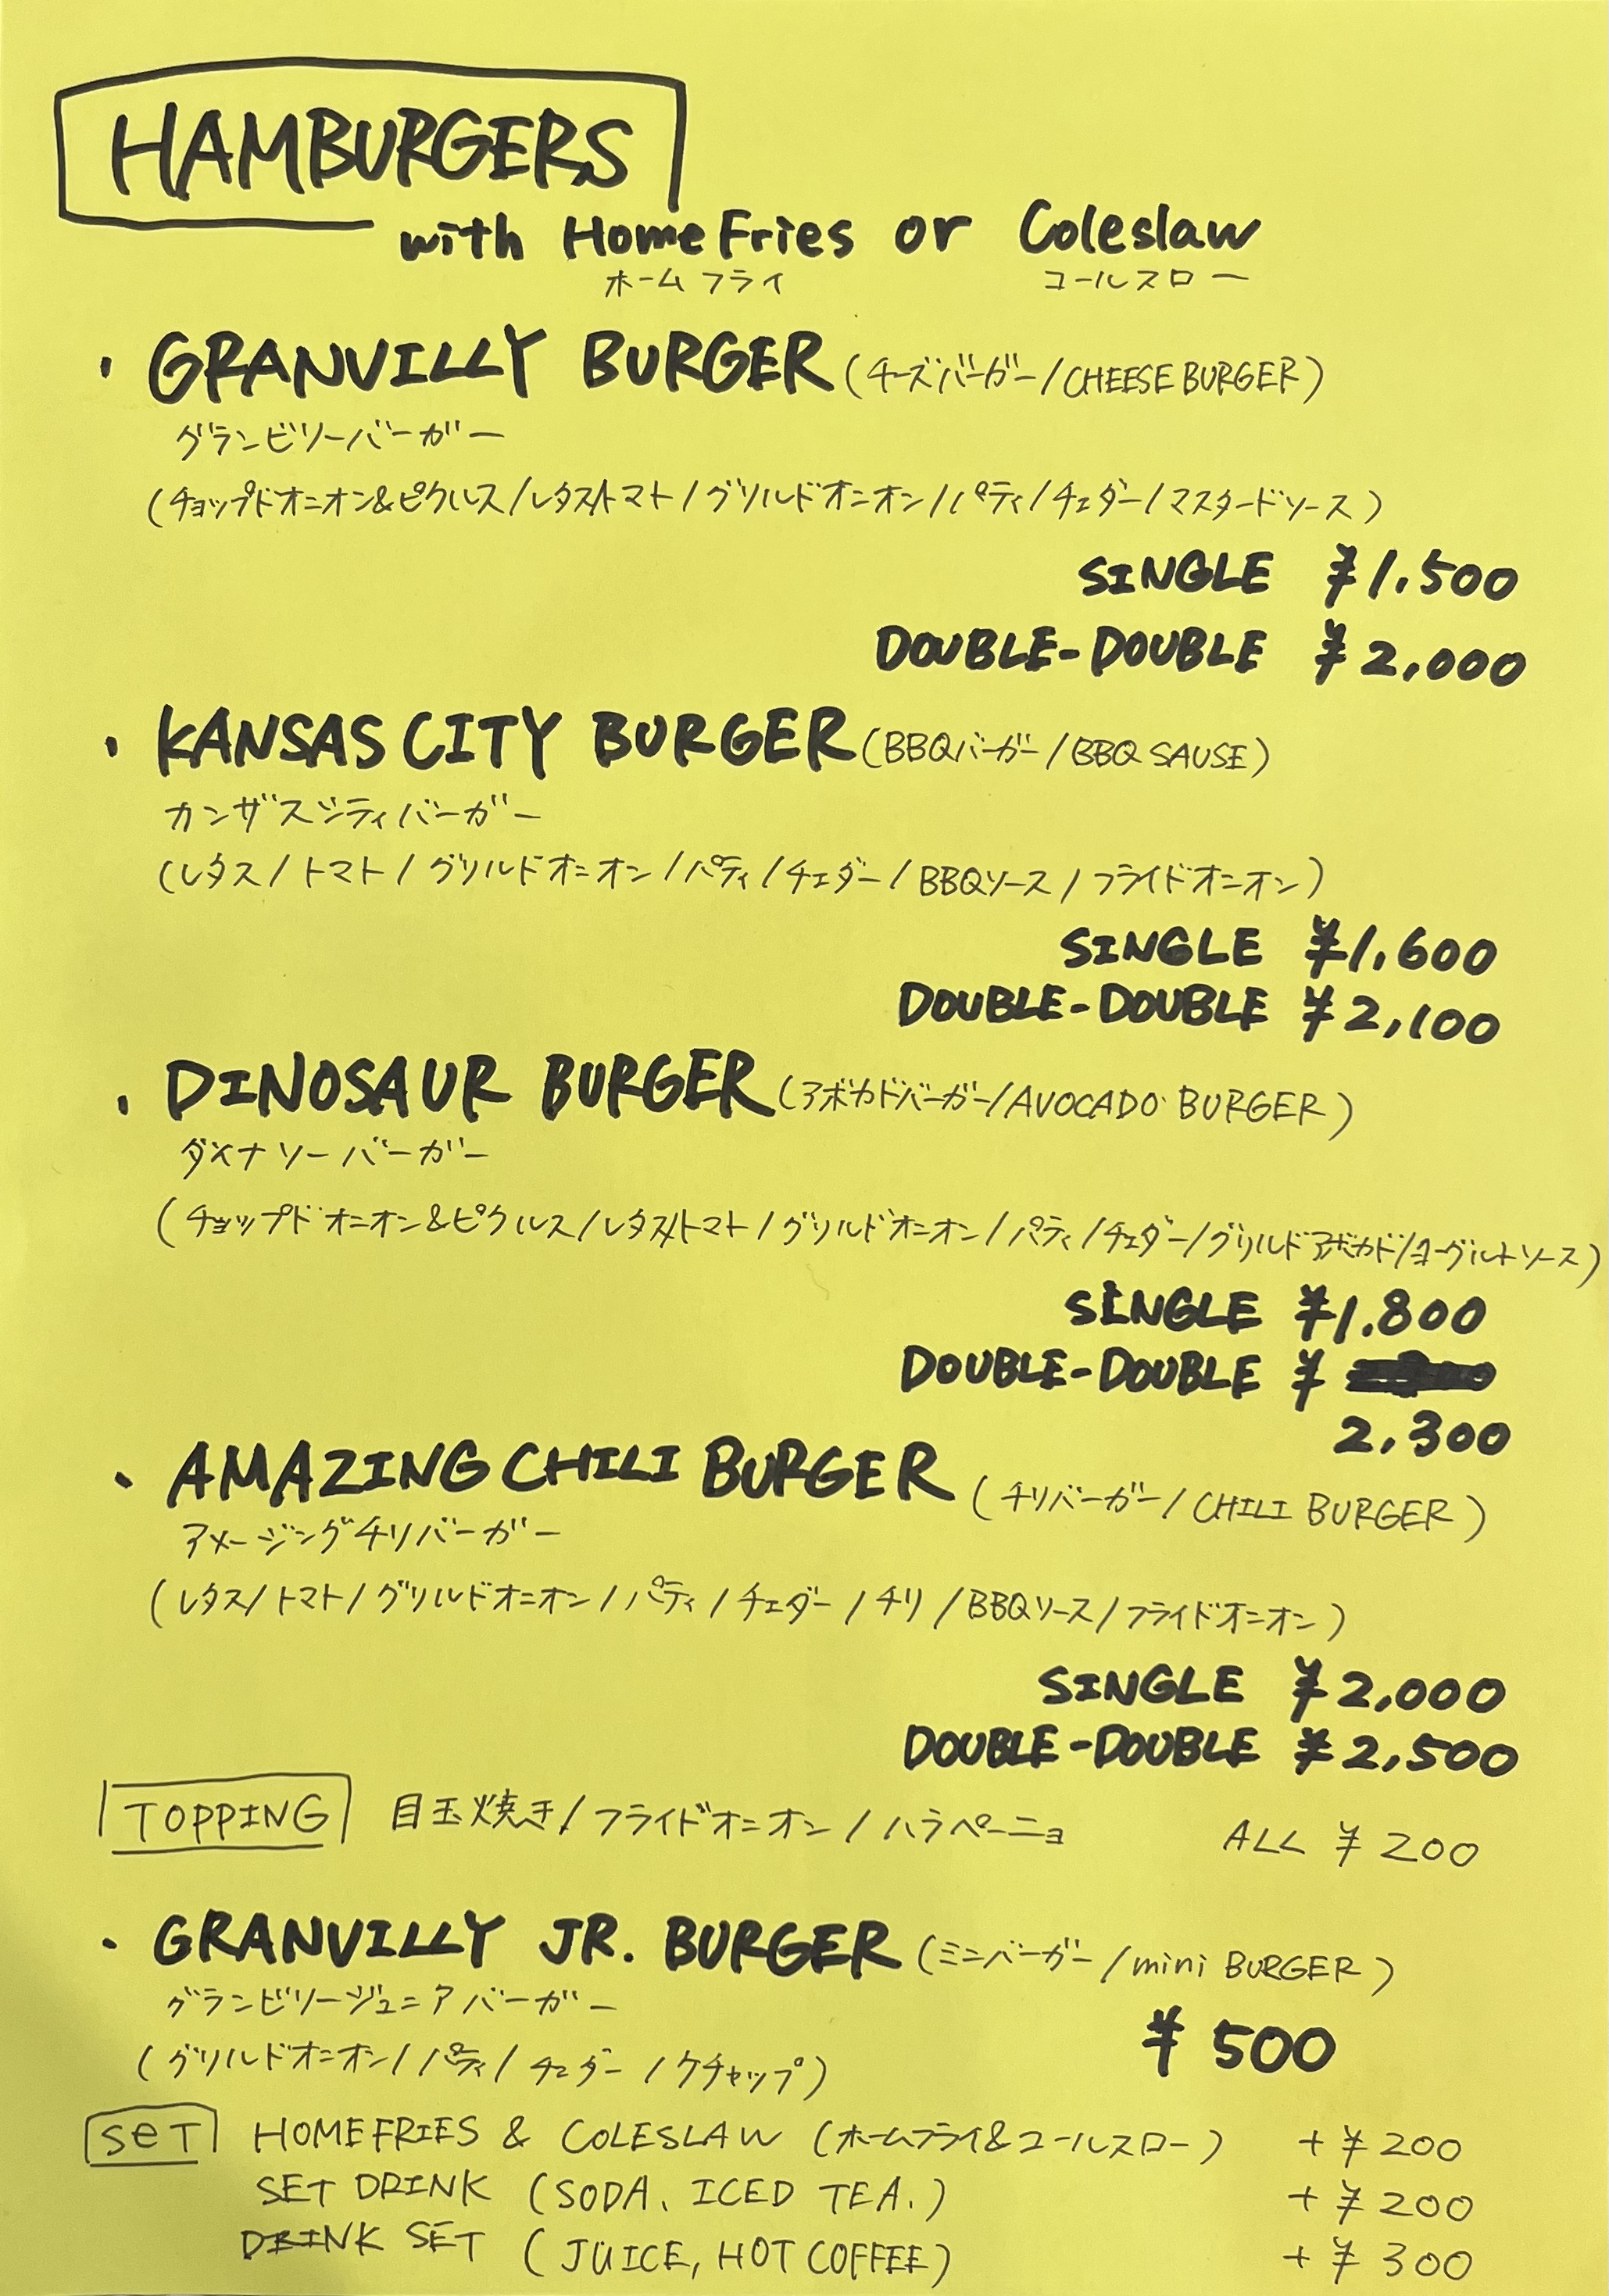 HAMBURGERS
with Home Fries or Coleslaw
ホームフライ コールスロー
・GRANVILLY BURGER (チーズバーガー/CHEESE BURGER)
グランビリーバーガー
(チョップドオニオン&ピクルス/レタス/トマト/グリルドオニオン/パティ/チェダー/マスタードソース)
SINGLE ¥1.500
DOUBLE-DOUBLE ¥2,000
・KANSAS CITY BURGER (BBQバーガー/BBQ SAUSE)
カンザスシティバーガー
(レタス/トマト/グリルドオニオン/パティ/チェダー/BBQソース/フライドオニオン)
SINGLE ¥1,600
DOUBLE-DOUBLE ¥2,100
・DINOSAUR BURGER (アボカドバーガー/AVOCADO BURGER)
ダイナソーバーガー
(チョップドオニオン&ピクルス/レタス/トマト/グリルドオニオン/パティ/チェダー/グリルドアボカド/ヨーグルトソース)
SINGLE ¥1.800
DOUBLE-DOUBLE ¥
2,300
・AMAZING CHILI BURGER (チリバーガー/CHILI BURGER)
アメージングチリバーガー
(レタス/トマト/グリルドオニオン/パティ/チェダー/チリ/BBQソース/フライドオニオン)
SINGLE ¥2,000
DOUBLE-DOUBLE ¥2,500
TOPPING 目玉焼き/フライドオニオン/ハラペーニョ ALL ¥200
・GRANVILLY JR. BURGER (ミニバーガー/mini BURGER)
グランビリージュニアバーガー
¥500
(グリルドオニオン/パティ/チェダー/ケチャップ)
SET HOMEFRIES & COLESLAW (ホームフライ&コールスロー) +¥200
SET DRINK (SODA、ICED TEA.) +¥200
DRINK SET (JUICE, HOT COFFEE) +¥300